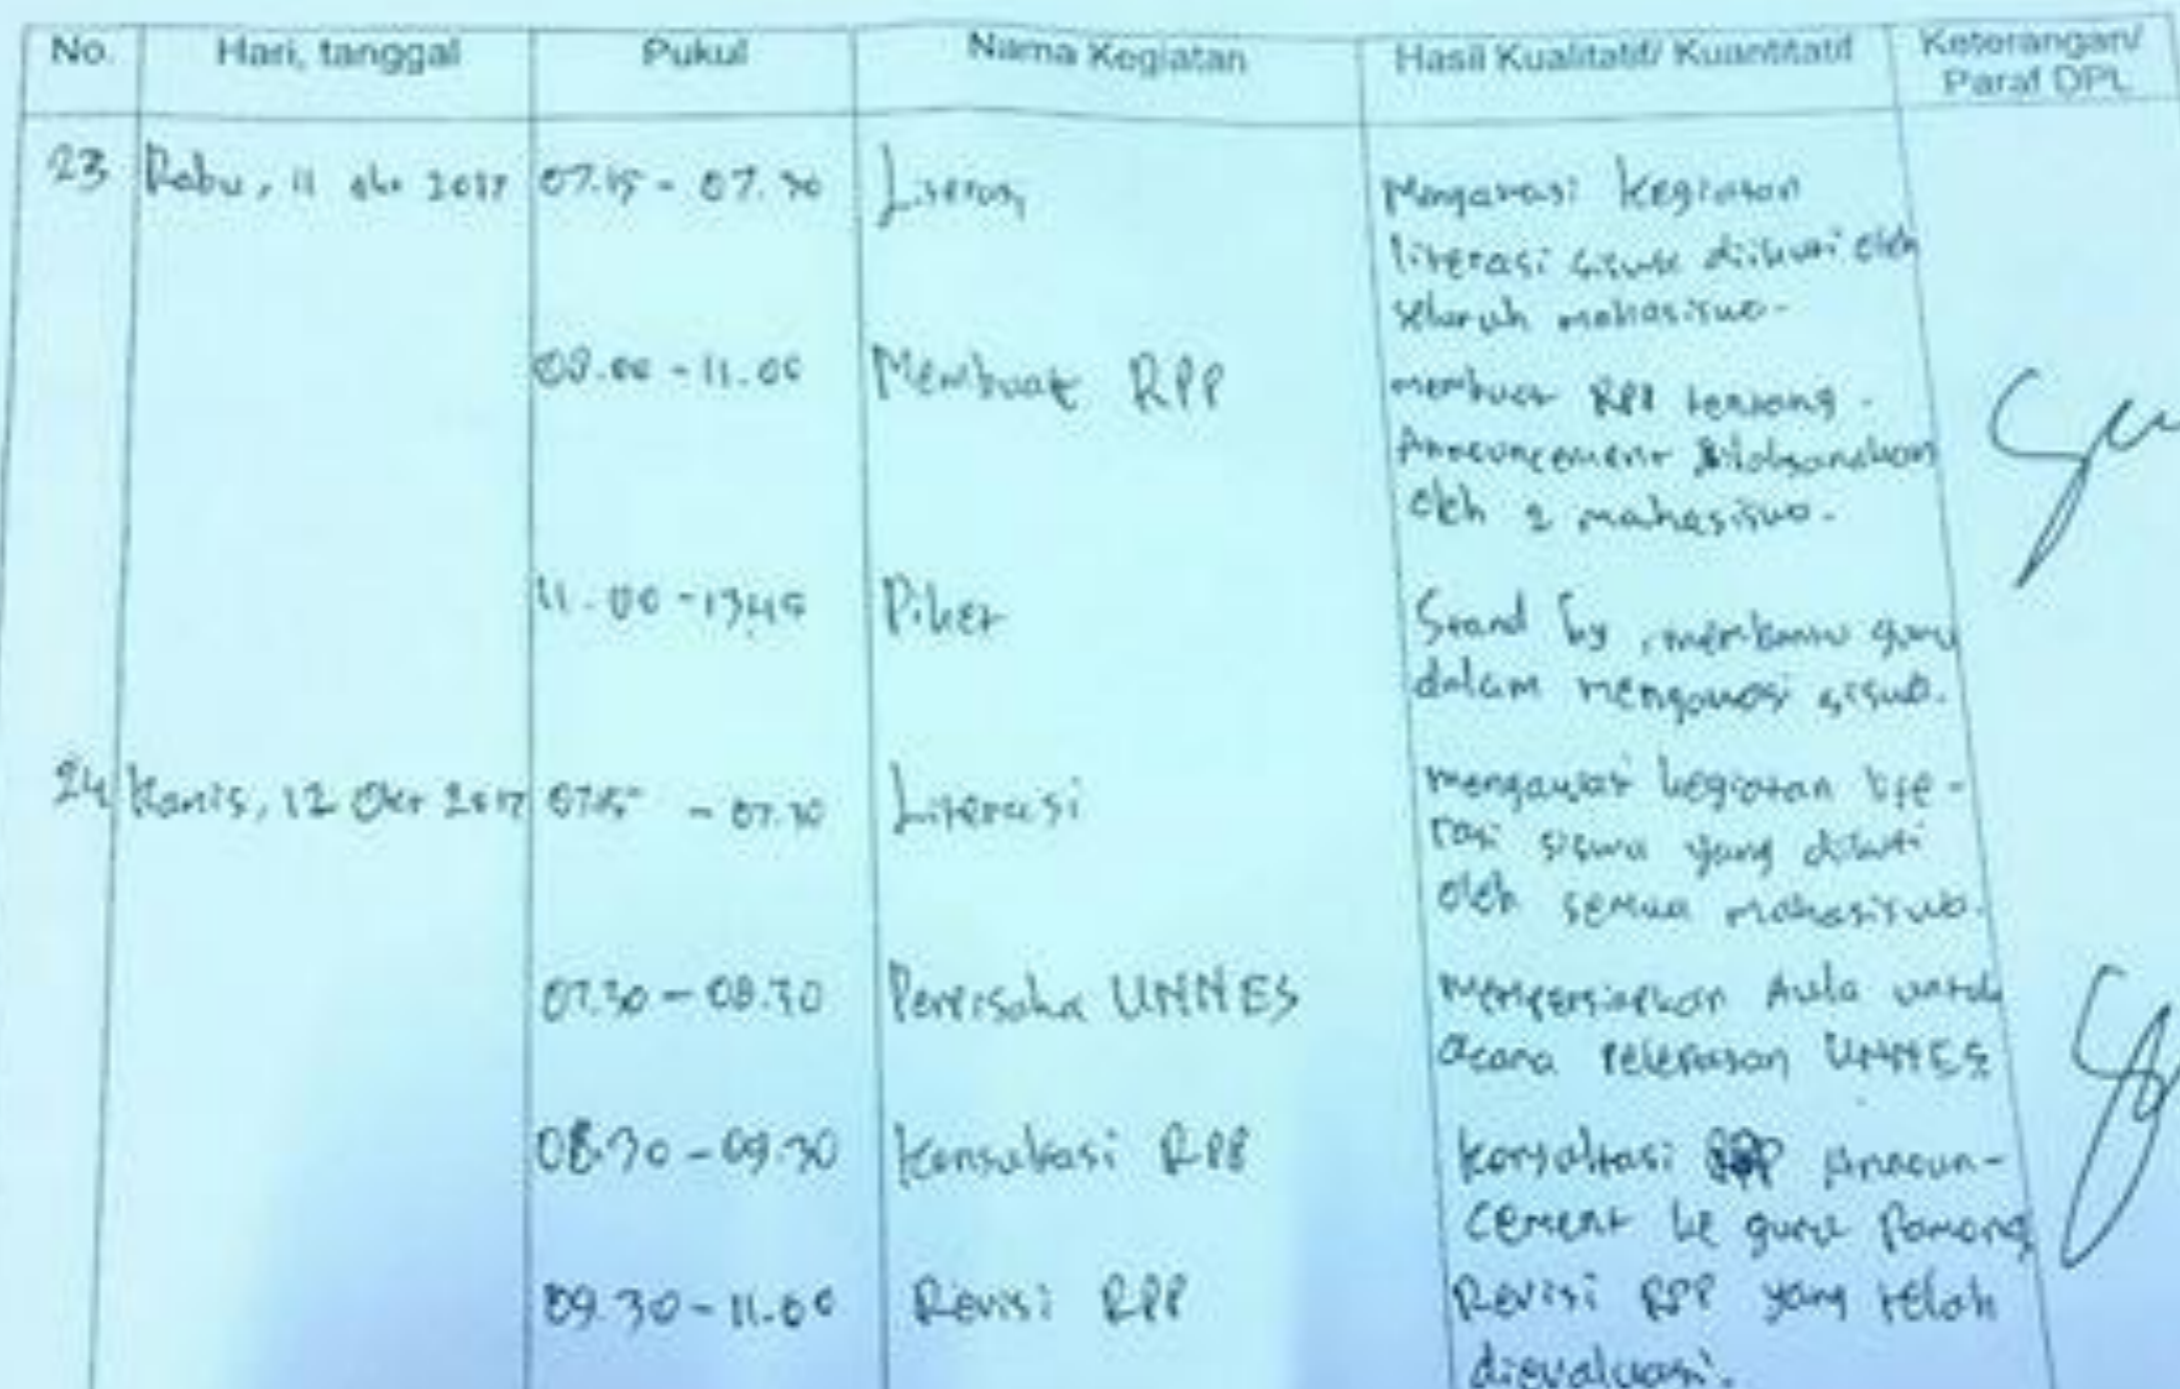 No. Hari, tanggal Pukul Nama Kegiatan Hasil Kualitatif/ Kuantitatif Keterangan/
Paraf DPL
23 Rabu, 11 okt 2017 07.15 - 07.30 Literasi Mengawasi kegiatan
literasi siswa diikuti oleh
seluruh mahasiswa.
08.00 - 11.00 Membuat RPP membuat RPP tentang
Announcement dilaksanakan
oleh 2 mahasiswa.
11.00 - 13.45 Piket Stand by, membantu guru
dalam mengawasi siswa.
24 Kamis, 12 Okt 2017 07.15 - 07.30 Literasi mengawasi kegiatan lite-
rasi siswa yang diikuti
oleh semua mahasiswa.
07.30 - 08.30 Perpisahan UNNES mempersiapkan Aula untuk
acara pelepasan UNNES
08.30 - 09.30 Konsultasi RPP konsultasi RPP Announ-
cement ke guru Pamong
09.30 - 11.00 Revisi RPP Revisi RPP yang telah
dievaluasi.